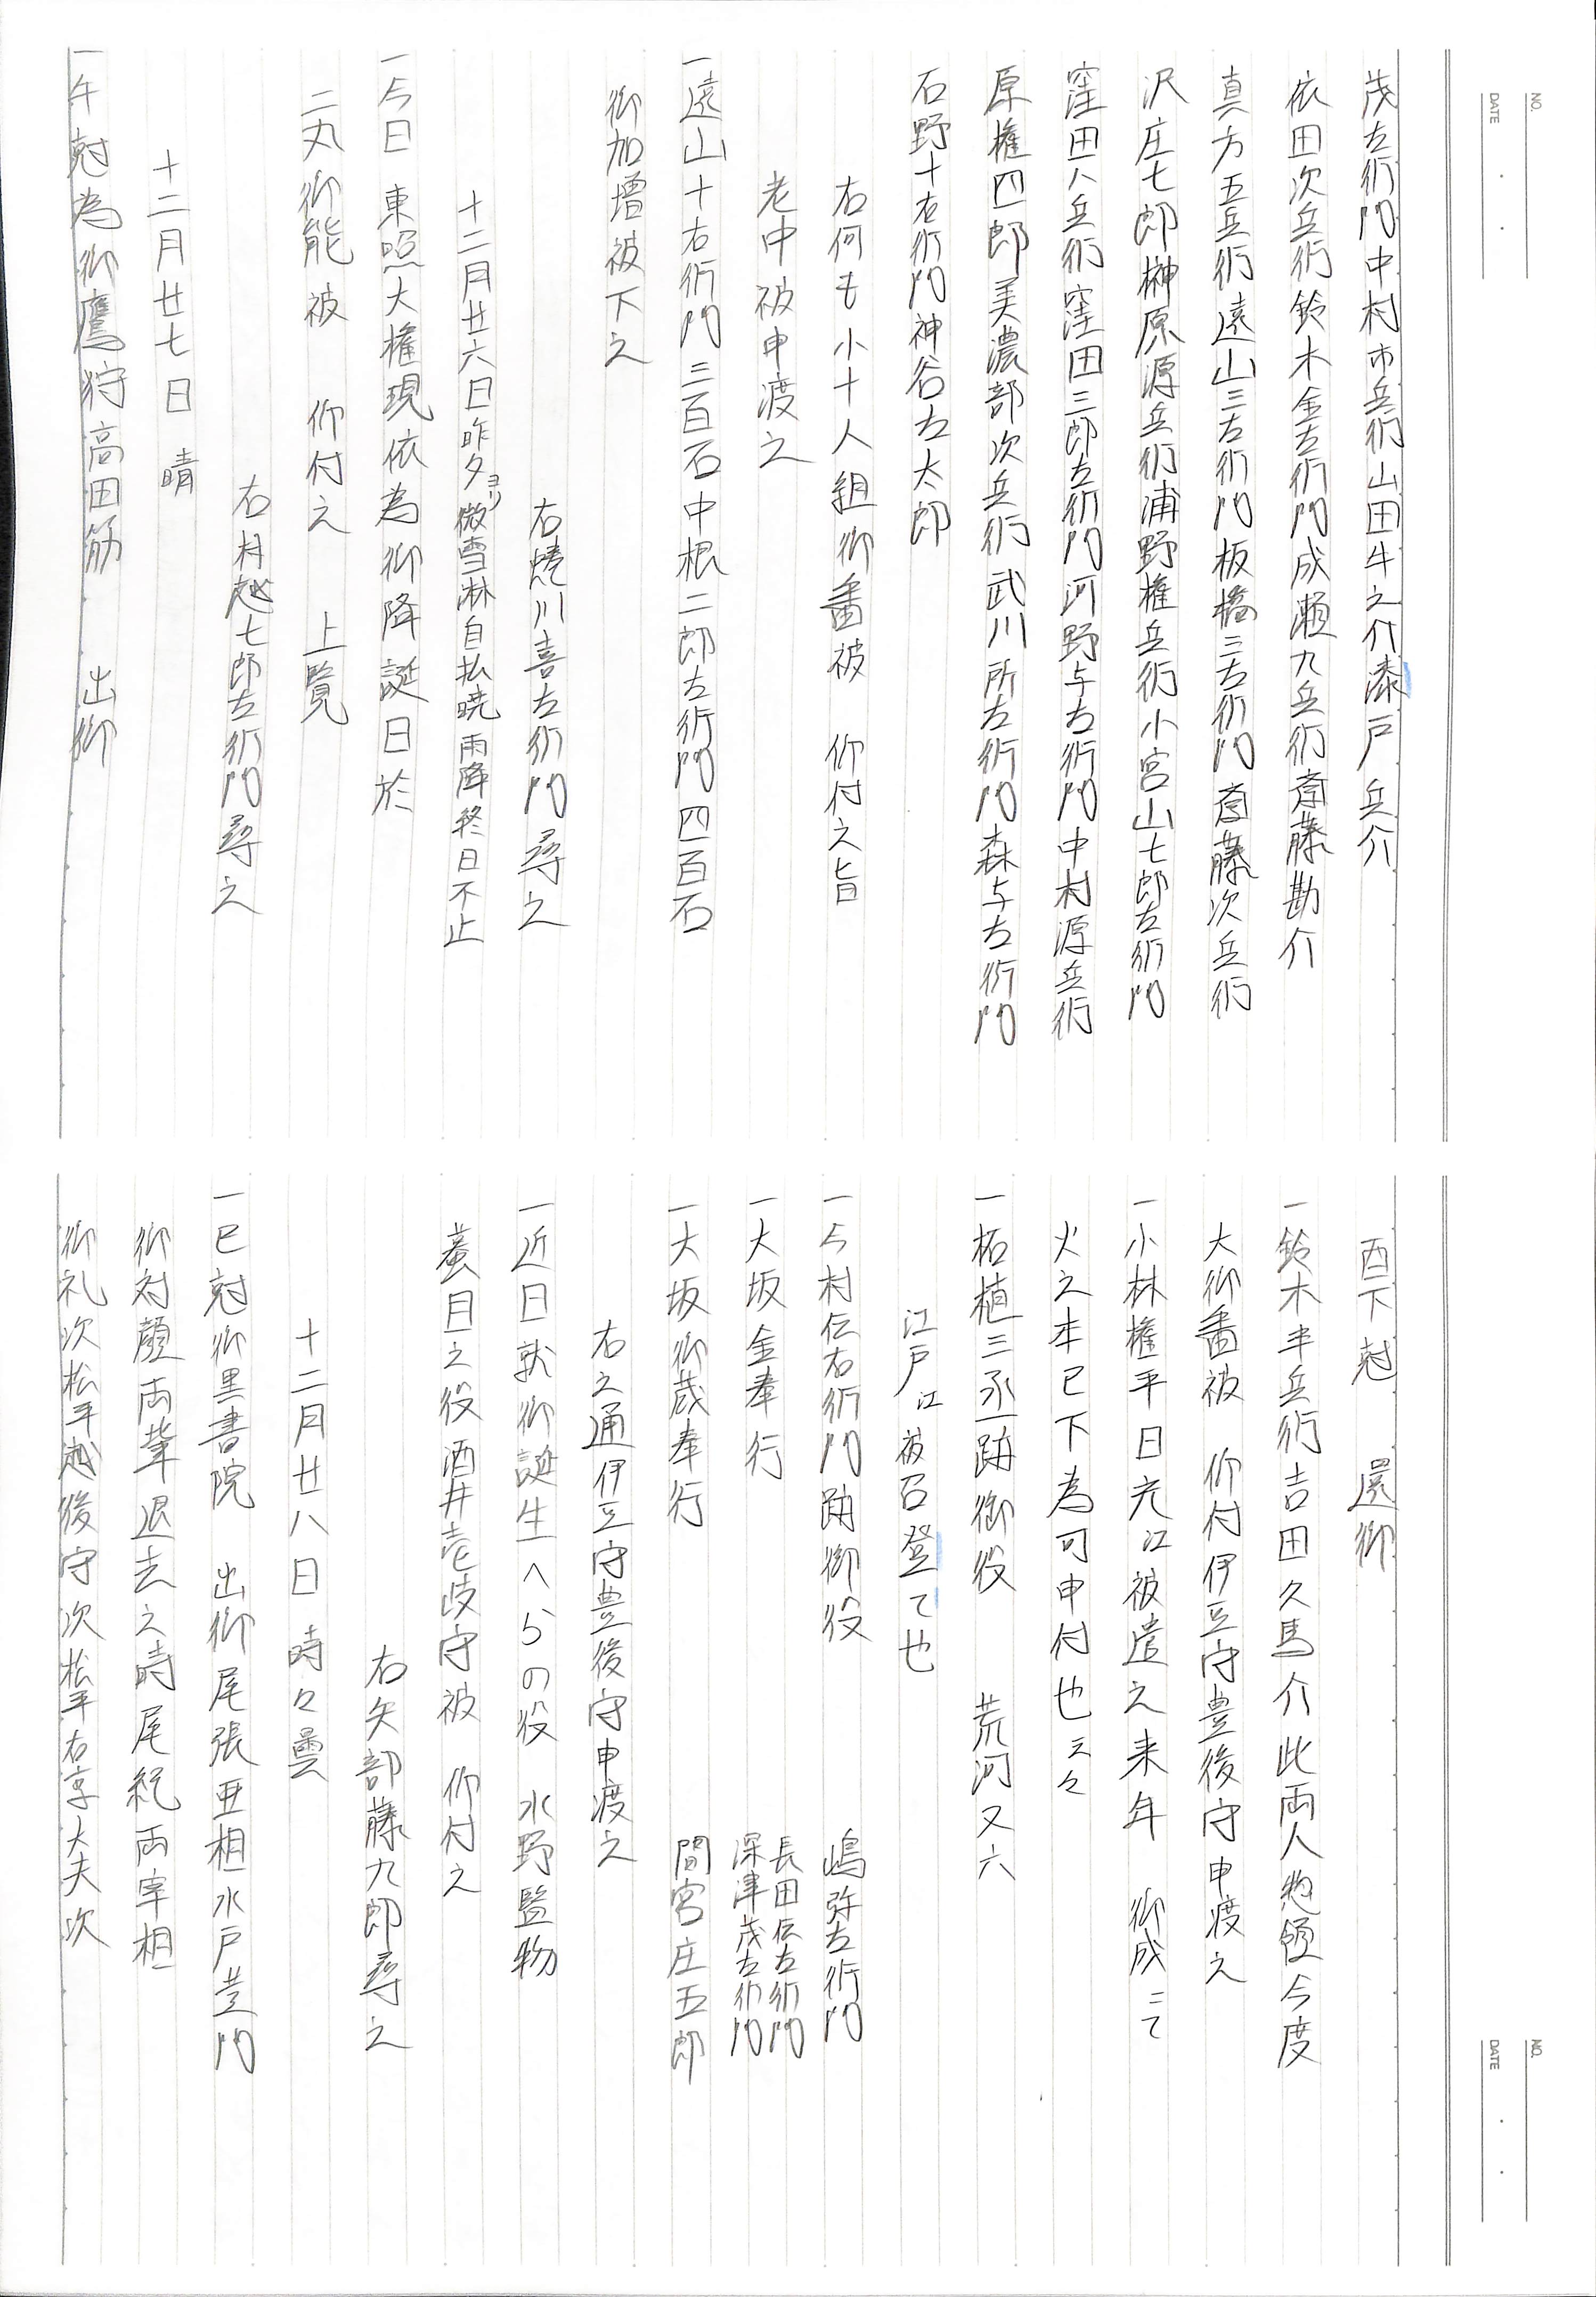 NO.
DATE
茂左衛門中村市兵衛山田牛之介漆戸兵介
依田次兵衛鈴木金左衛門成瀬九兵衛斎藤勘介
真方五兵衛遠山三右衛門板橋三右衛門斎藤次兵衛
沢庄七郎榊原源兵衛浦野権兵衛小宮山七郎左衛門
窪田八兵衛窪田三郎左衛門河野与右衛門中村源兵衛
原権四郎美濃部次兵衛武川所左衛門森与左衛門
石野十右衛門神谷左太郎
右何も小十人組御番被 仰付之旨
老中被申渡之
一遠山十右衛門三百石中根二郎左衛門四百石
御加増被下之
右蜷川喜左衛門尋之
十二月廿六日昨夕ヨリ微雪淋自払暁雨降終日不止
一今日 東照大権現依為御降誕日於
二丸御能被 仰付之 上覧
右村越七郎左衛門尋之
十二月廿七日 晴
一午尅為御鷹狩高田筋 出御
NO.
DATE
酉下尅 還御
一鈴木半兵衛吉田久馬介此両人惣領今度
大御番被 仰付伊豆守豊後守申渡之
一小林権平日光江被遣之来年 御成ニて
火之本已下為可申付也云々
一柘植三丞跡御役 荒河又六
江戸江被召登て也
一今村伝右衛門跡御役 嶋弥左衛門
一大坂金奉行 長田伝左衛門
深津茂左衛門
一大坂御蔵奉行 間宮庄五郎
右之通伊豆守豊後守申渡之
一近日就御誕生へらの役 水野監物
蟇目之役酒井壱岐守被 仰付之
右矢部藤九郎尋之
十二月廿八日 時々曇
一巳尅御黒書院 出御尾張亜相水戸黄門
御対顔両輩退去之時尾紀両宰相
御礼次松平越後守次松平右京大夫次